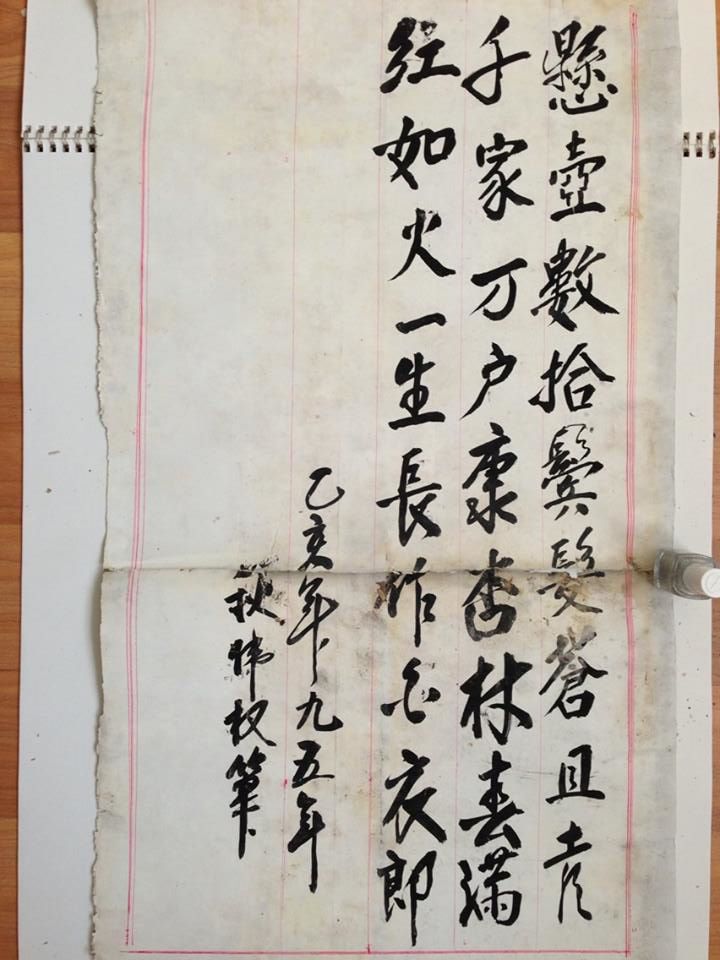 懸壺數拾鬢髮蒼且喜
千家万户康杏林春滿
紅如火一生長作白衣郎
乙亥年九五年
权筆